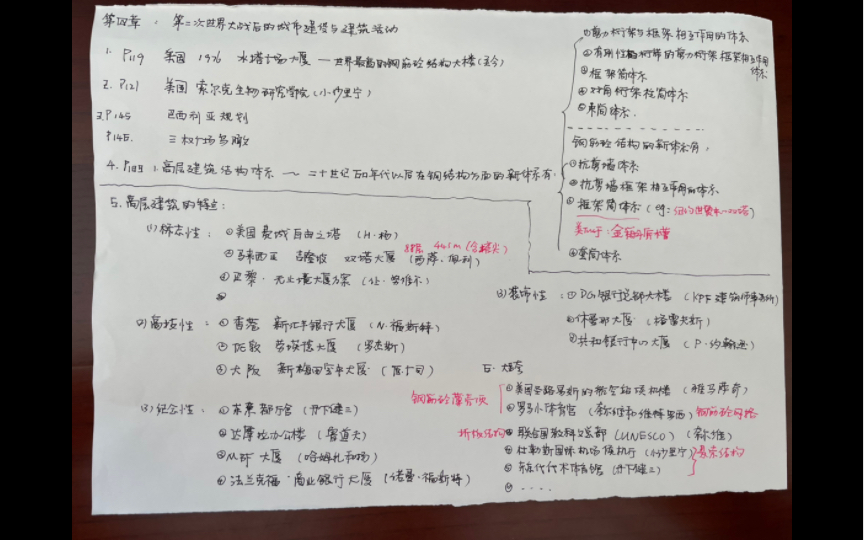 第四章： 第二次世界大战后的城市建设与建筑活动
1. P119 美国 1976 水塔广场大厦 — 世界最高的钢筋砼结构大楼(至今)
2. P121 美国 索尔克生物研究学院(小沙里宁)
3. P145 巴西利亚规划
P145. 三权广场鸟瞰
4. 高层建筑结构体系 ～ 二十世纪五0年代以后在钢结构方面的新体系有:
①剪力桁架与框架相互作用的体系
②有刚性桁架的剪力桁架框架相互作用体系
③框架筒体系
④对角桁架柱筒体系
⑤束筒体系.
钢筋砼结构的新体系有,
①抗剪墙体系
②抗剪墙框架相互作用的体系
③框架筒体系 (
④套筒体系
5. 高层建筑的特点:
(1) 标志性: ①美国 费城自由之塔 (H·杨)
②马来西亚 吉隆坡 双塔大厦 (西萨·佩利)
445m (含塔尖)
③巴黎·无止境大厦方案 (让·努维尔)
④
(2) 高技性: ①香港 新汇丰银行大厦 (N·福斯特)
②伦敦 劳埃德大厦 (罗杰斯)
③大阪 新梅田空中大厦 (原广司)
(3) 纪念性: ①东京都厅舍 (丹下健三)
②达摩拉办公楼 (鲁道夫)
③M环 大厦 (哈姆扎和杨)
④法兰克福·商业银行大厦 (诺曼·福斯特)
(3) 装饰性: ①PG银行总部大楼 (KPF建筑师事务所)
②休曼那大厦 (格雷夫斯)
③共和银行中心大厦 (P·约翰逊)
6. 大跨
①美国圣路易斯的航空站候机楼 (雅马萨奇)
钢筋砼薄壳顶
②罗马小体育宫 (奈维和维特罗西) 钢筋砼网格
③联合国教科文总部 (UNESCO) (奈维)
折板结构
④杜勒斯国际机场候机厅 (小沙里宁) 悬索结构
⑤东京代代木体育馆 (丹下健三)
⑥ ‥‥